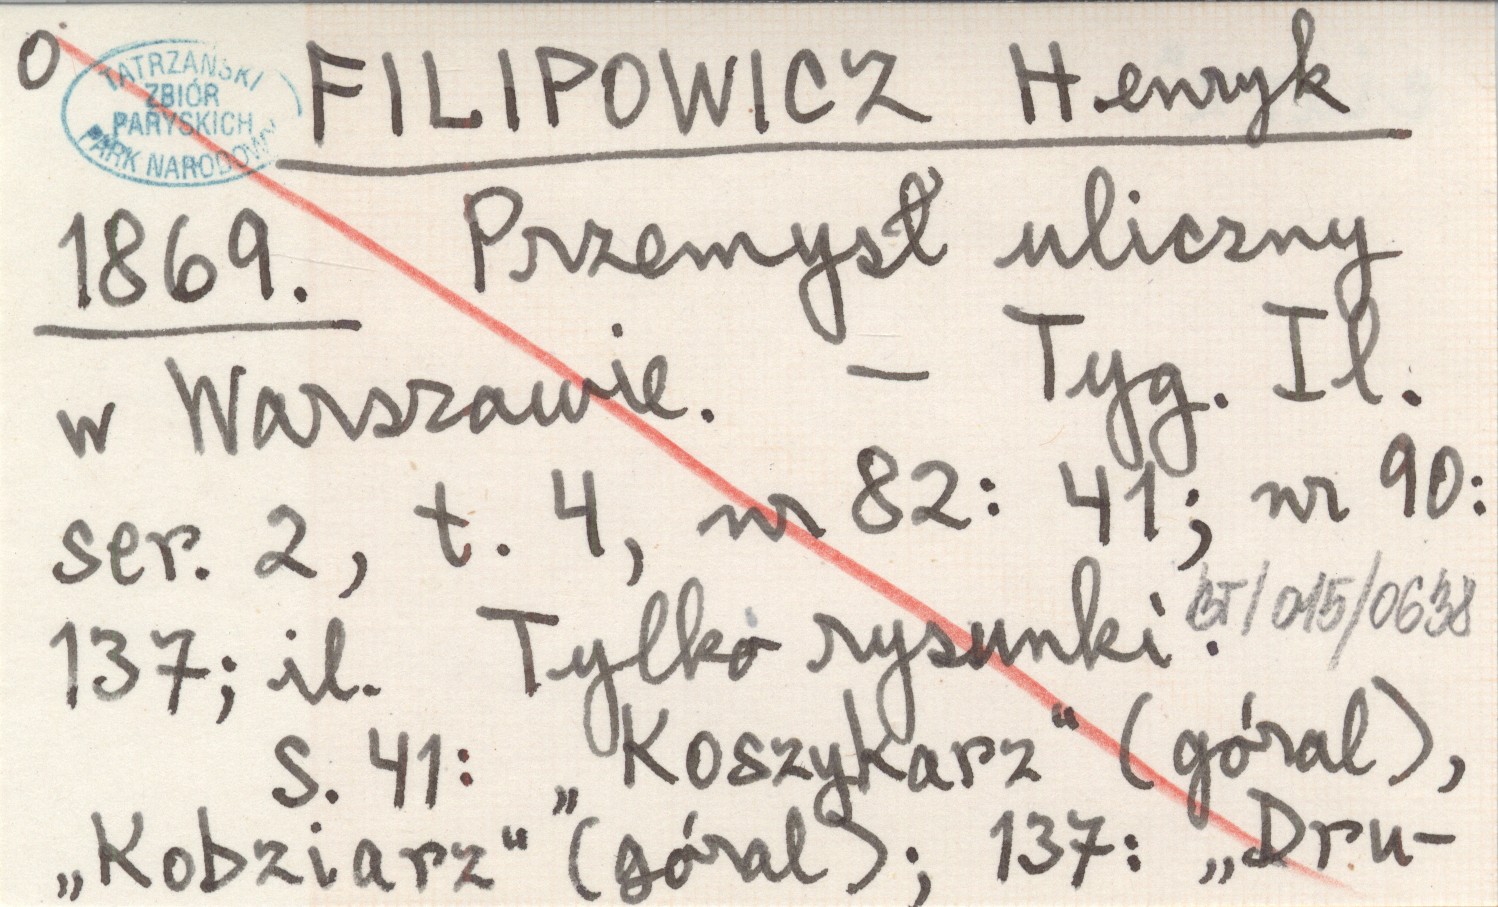 O
TATRZAŃSKI
ZBIÓR
PARYSKICH
PARK NARODOWY
FILIPOWICZ Henryk
1869. Przemysł uliczny
w Warszawie. — Tyg. Il.
ser. 2, t. 4, nr 82: 41; nr 90:
137; il. Tylko rysunki.
BT/015/0638
s. 41: „Koszykarz“ (góral),
„Kobziarz“ (góral); 137: „Dru-